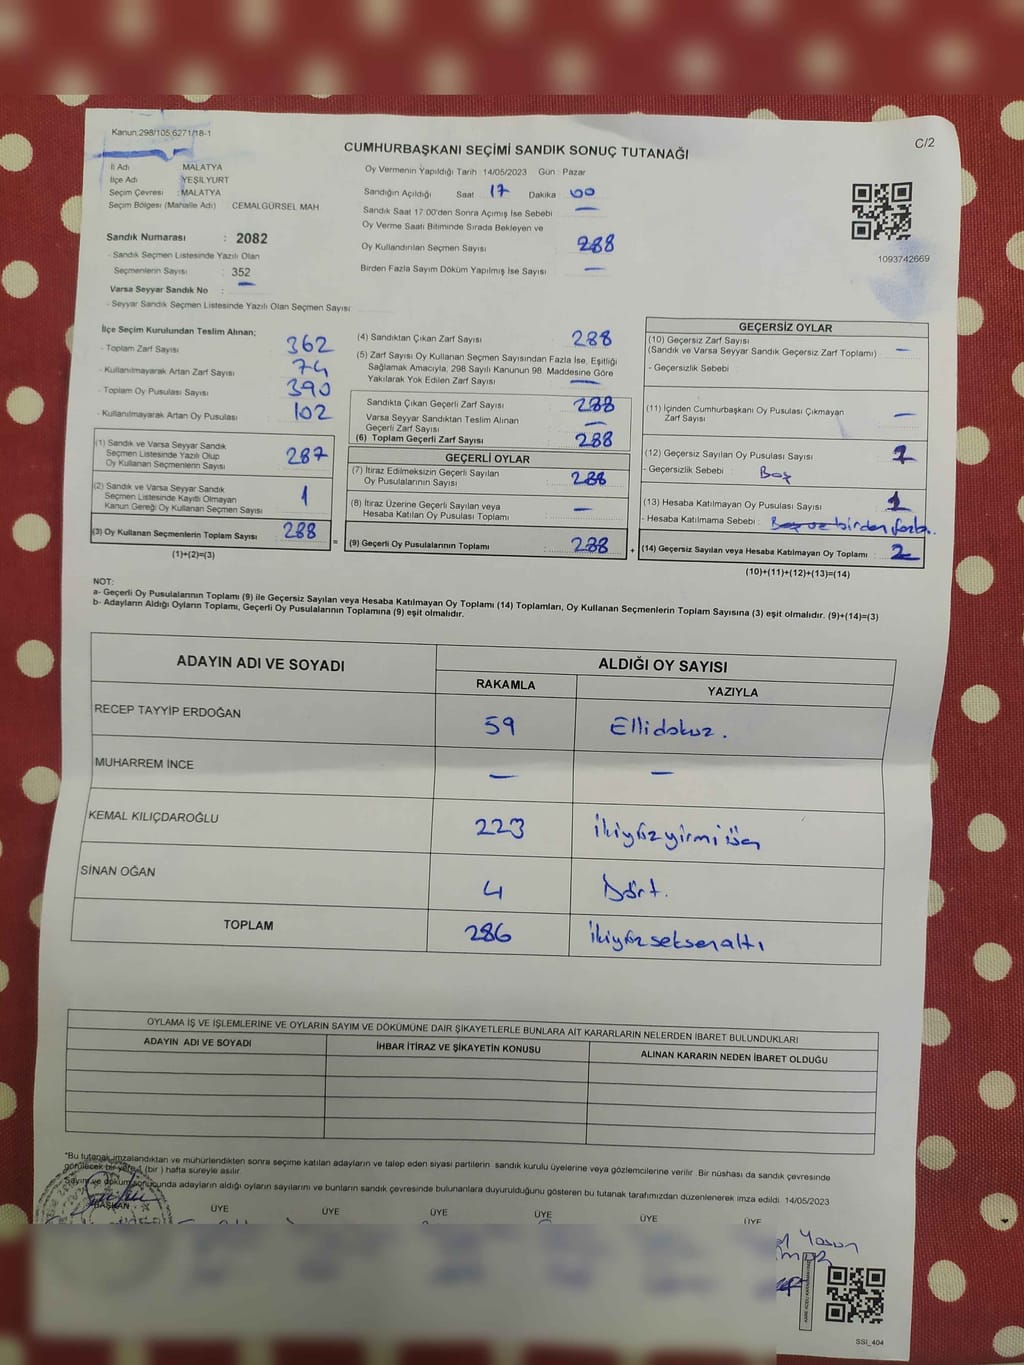 Kanun:298/105,6271/18-1
C/2
CUMHURBAŞKANI SEÇİMİ SANDIK SONUÇ TUTANAĞI
İl Adı MALATYA
İlçe Adı YEŞİLYURT
Seçim Çevresi : MALATYA
Seçim Bölgesi (Mahalle Adı) CEMALGÜRSEL MAH
Sandık Numarası : 2082
- Sandık Seçmen Listesinde Yazılı Olan
Seçmenlerin Sayısı : 352
Varsa Seyyar Sandık No :
- Seyyar Sandık Seçmen Listesinde Yazılı Olan Seçmen Sayısı
Oy Vermenin Yapıldığı Tarih 14/05/2023 Gün Pazar
Sandığın Açıldığı Saat 17 Dakika 00
Sandık Saat 17:00'den Sonra Açımış İse Sebebi —
Oy Verme Saati Bitiminde Sırada Bekleyen ve
Oy Kullandırılan Seçmen Sayısı 288
Birden Fazla Sayım Döküm Yapılmış İse Sayısı —
1093742669
İlçe Seçim Kurulundan Teslim Alınan;
- Toplam Zarf Sayısı 362
- Kullanılmayarak Artan Zarf Sayısı 74
- Toplam Oy Pusulası Sayısı 390
- Kullanılmayarak Artan Oy Pusulası 102
(1) Sandık ve Varsa Seyyar Sandık
Seçmen Listesinde Yazılı Olup
Oy Kullanan Seçmenlerin Sayısı 287
(2) Sandık ve Varsa Seyyar Sandık
Seçmen Listesinde Kayıtlı Olmayan
Kanun Gereği Oy Kullanan Seçmen Sayısı 1
(3) Oy Kullanan Seçmenlerin Toplam Sayısı 288
(1)+(2)=(3)
(4) Sandıktan Çıkan Zarf Sayısı 288
(5) Zarf Sayısı Oy Kullanan Seçmen Sayısından Fazla İse, Eşitliği
Sağlamak Amacıyla, 298 Sayılı Kanunun 98. Maddesine Göre
Yakılarak Yok Edilen Zarf Sayısı —
Sandıkta Çıkan Geçerli Zarf Sayısı 288
Varsa Seyyar Sandıktan Teslim Alınan
Geçerli Zarf Sayısı —
(6) Toplam Geçerli Zarf Sayısı 288
GEÇERLİ OYLAR
(7) İtiraz Edilmeksizin Geçerli Sayılan
Oy Pusulalarının Sayısı 288
(8) İtiraz Üzerine Geçerli Sayılan veya
Hesaba Katılan Oy Pusulası Toplamı —
= (9) Geçerli Oy Pusulalarının Toplamı 288
GEÇERSİZ OYLAR
(10) Geçersiz Zarf Sayısı
(Sandık ve Varsa Seyyar Sandık Geçersiz Zarf Toplamı) —
- Geçersizlik Sebebi
(11) İçinden Cumhurbaşkanı Oy Pusulası Çıkmayan
Zarf Sayısı —
(12) Geçersiz Sayılan Oy Pusulası Sayısı 1
- Geçersizlik Sebebi : Boş
(13) Hesaba Katılmayan Oy Pusulası Sayısı 1
- Hesaba Katılmama Sebebi : Boş ve birden fazla..
+ (14) Geçersiz Sayılan veya Hesaba Katılmayan Oy Toplamı 2
(10)+(11)+(12)+(13)=(14)
NOT:
a- Geçerli Oy Pusulalarının Toplamı (9) ile Geçersiz Sayılan veya Hesaba Katılmayan Oy Toplamı (14) Toplamları, Oy Kullanan Seçmenlerin Toplam Sayısına (3) eşit olmalıdır. (9)+(14)=(3)
b- Adayların Aldığı Oyların Toplamı, Geçerli Oy Pusulalarının Toplamına (9) eşit olmalıdır.
ADAYIN ADI VE SOYADI ALDIĞI OY SAYISI
RAKAMLA YAZIYLA
RECEP TAYYİP ERDOĞAN 59 Ellidokuz.
MUHARREM İNCE — —
KEMAL KILIÇDAROĞLU 223 İkiyüzyirmiüç
SİNAN OĞAN 4 Dört.
TOPLAM 286 İkiyüzseksenaltı
OYLAMA İŞ VE İŞLEMLERİNE VE OYLARIN SAYIM VE DÖKÜMÜNE DAİR ŞİKAYETLERLE BUNLARA AİT KARARLARIN NELERDEN İBARET BULUNDUKLARI
ADAYIN ADI VE SOYADI İHBAR İTİRAZ VE ŞİKAYETİN KONUSU ALINAN KARARIN NEDEN İBARET OLDUĞU
*Bu tutanak imzalandıktan ve mühürlendikten sonra seçime katılan adayların ve talep eden siyasi partilerin sandık kurulu üyelerine veya gözlemcilerine verilir. Bir nüshası da sandık çevresinde
görülecek bir yere 1 (bir) hafta süreyle asılır.
Sayım ve döküm sonucunda adayların aldığı oyların sayılarını ve bunların sandık çevresinde bulunanlara duyurulduğunu gösteren bu tutanak tarafımızdan düzenlenerek imza edildi. 14/05/2023
BAŞKAN ÜYE ÜYE ÜYE ÜYE ÜYE ÜYE
Yasan
SSI_404